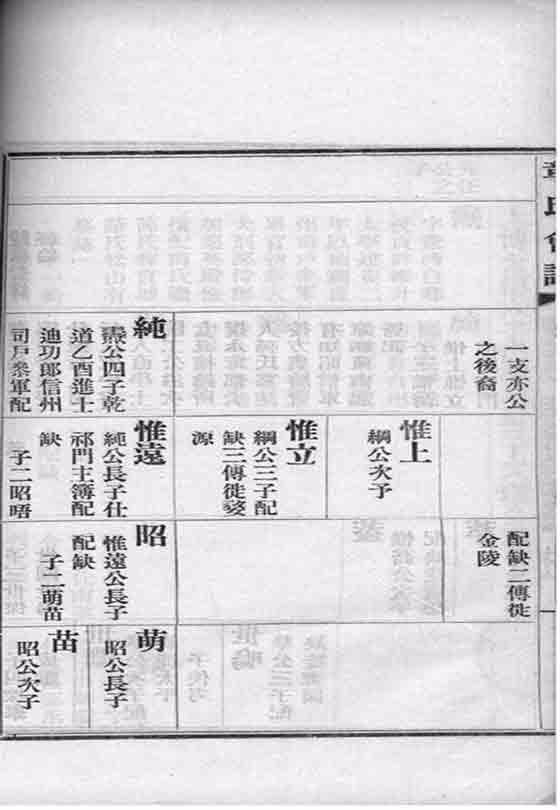 章氏會譜
一支亦公
之後裔
純
公四子乾
道乙酉進士
迪功郎信州
司戶叅軍配
惟上
綱公次子
惟立
綱公三子配
缺三傳徙婺
源
惟遠
純公長子仕
祁門主簿配
缺
子二昭晤
配缺二傳徙
金陵
昭
惟遠公長子
配缺
子二萌苗
萌
昭公長子
苗
昭公次子